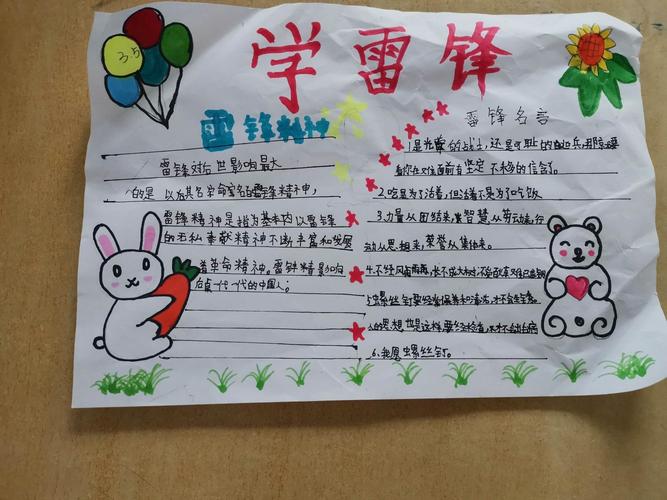 3.5
学雷锋
雷锋精神
雷锋对后世影响最大
的是 以其名命名的雷锋精神，
雷锋精神是指为基本内以雷锋
的无私奉献精神不断丰富和发展
着革命精神。雷锋精影响
后一代一代的中国人；
雷锋名言
1是光荣的战士，还是可耻的逃兵，那要
看你在对面前有坚定不移的信念了。
2.吃是为了活着，但活着不是为了吃饭
3.力量从团结来，智慧从劳动来，行
动从思想来，荣誉从集体来。
4.不经风雨，长不成大树；不
5螺丝钉要经常保养和清洗，才不会生锈。
人的思想也是这样，要经常检查，才不会出毛病
6.我愿螺丝钉。